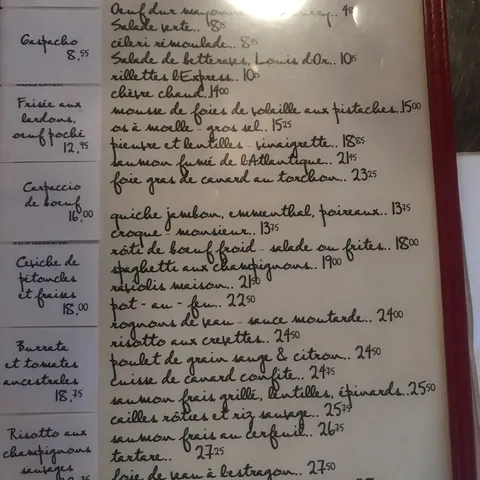 Gaspacho
8,55
Frisée aux
lardons,
oeuf poché
12,95
Carpaccio
de boeuf
16,00
Ceviche de
pétoncles
et fraises
18,00
Burrata
et tomates
ancestrales
18,75
Risotto aux
champignons
sauvages
Oeuf dur mayonnaise
Salade verte.. 8
céleri rémoulade.. 8
Salade de betteraves, Louis d'Or.. 10
rillettes l'Express.. 10
chèvre chaud..14 00
mousse de foies de volaille aux pistaches..15 00
os à moelle - gros sel.. 15 25
pieuvre et lentilles - vinaigrette.. 18 85
saumon fumé de l'Atlantique.. 21
foie gras de canard au torchon.. 23 25
quiche jambon, emmenthal, poireaux.. 13 75
croque - monsieur.. 13 75
rôti de boeuf froid - salade ou frites.. 18 00
spaghetti aux champignons.. 19 00
raviolis maison.. 21 50
pot - au - feu.. 22 50
rognons de veau - sauce moutarde.. 24 00
risotto aux crevettes.. 24 50
poulet de grain sauge & citron.. 24 50
cuisse de canard confite.. 24 75
saumon frais grillé, lentilles, épinards..25 50
cailles rôties et riz sauvage.. 25 75
saumon frais au cerfeuil.. 26 75
tartare.. 27 25
foie de veau à l'estragon.. 27 50